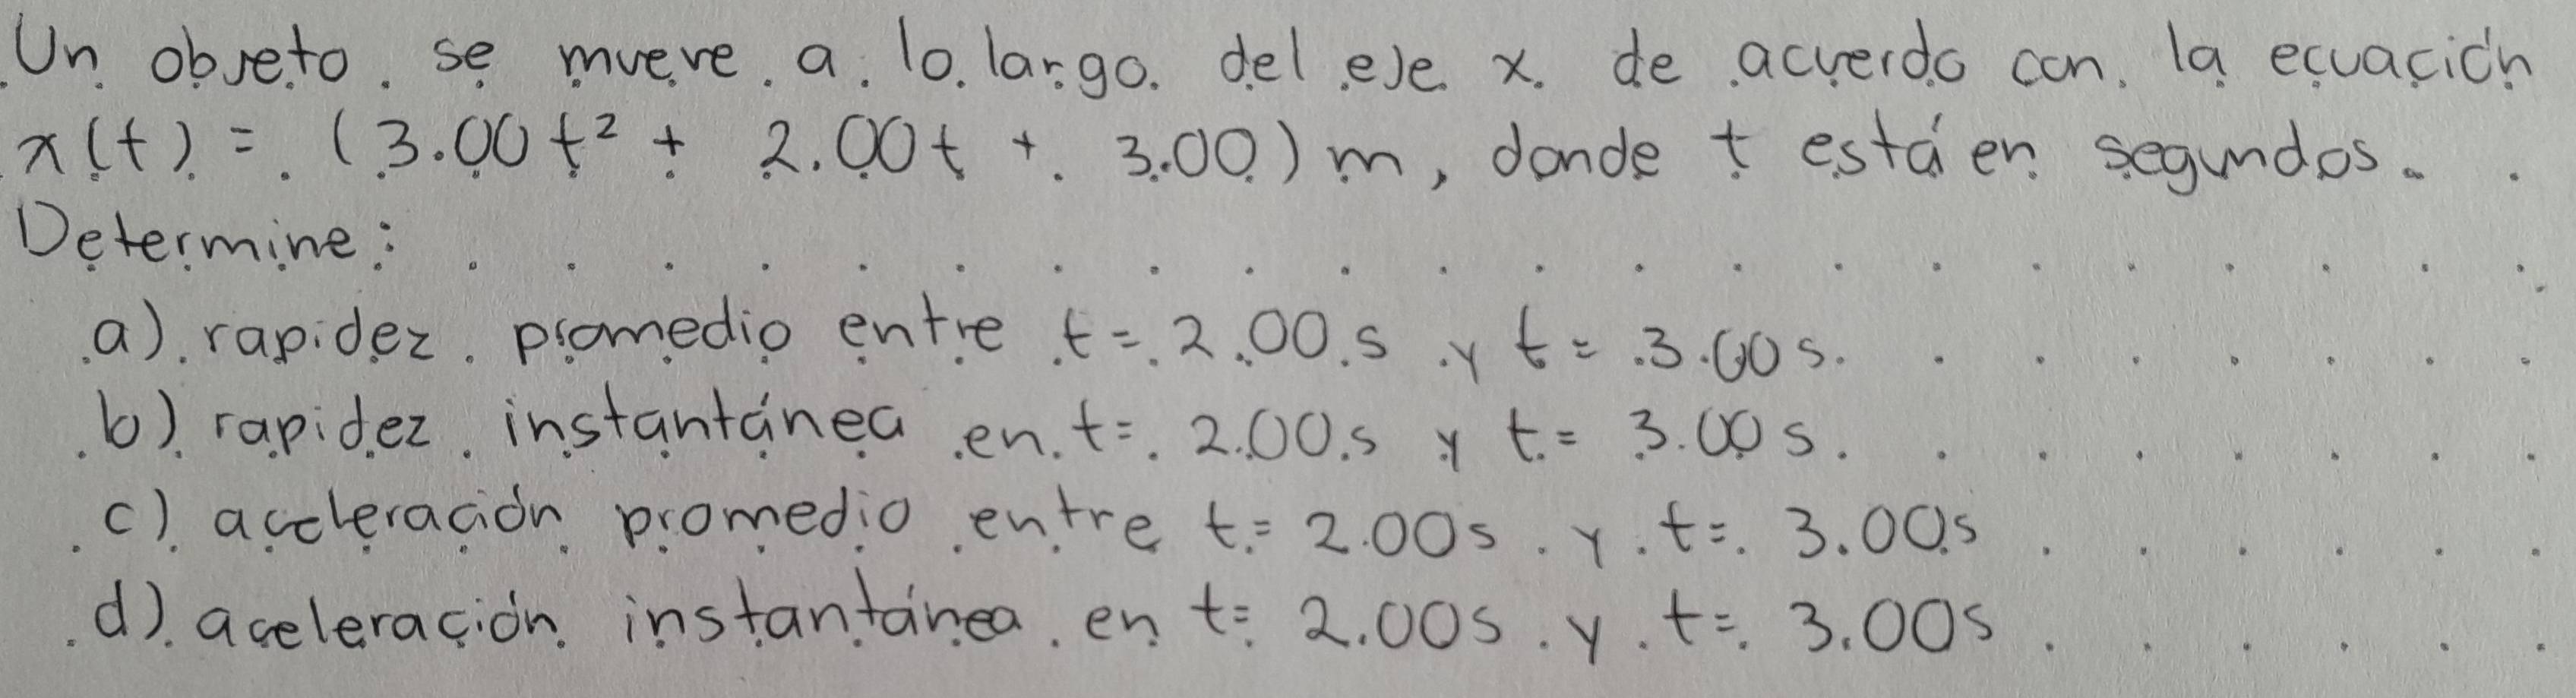 Un objeto se mueve a lo largo del eje x de acuerdo con la ecuación
x(t) = (3.00t² + 2.00t + 3.00) m, donde t está en segundos.
Determine:
a) rapidez promedio entre t = 2.00 s y t = 3.00 s.
b) rapidez instantánea en t = 2.00 s y t = 3.00 s.
c) aceleración promedio entre t = 2.00 s y t = 3.00 s
d) aceleración instantánea en t = 2.00 s y t = 3.00 s